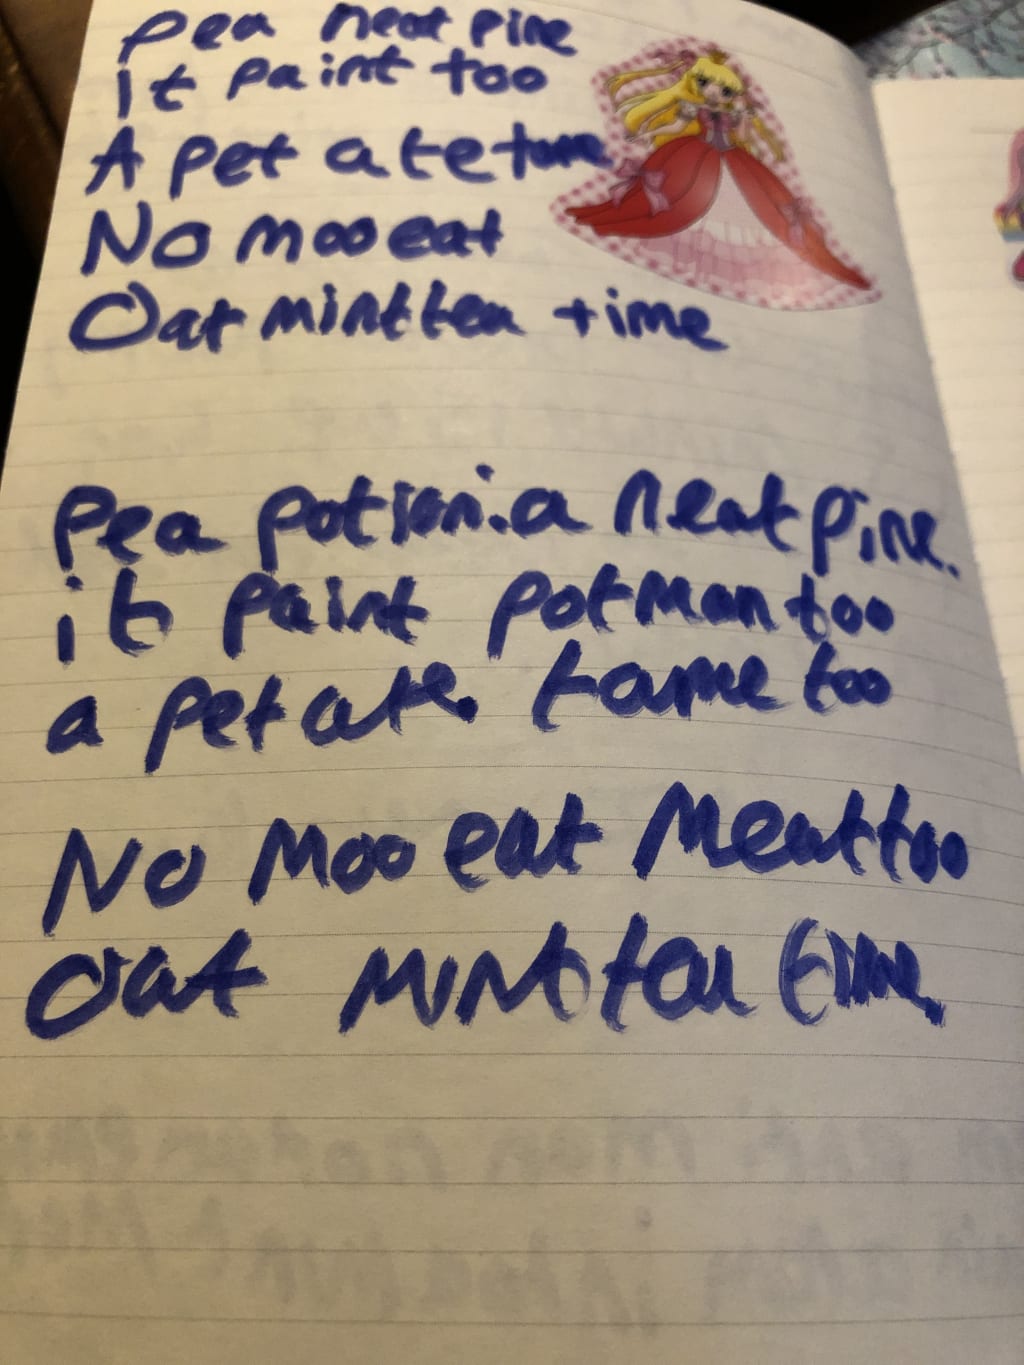 pea neat pine
it paint too
A pet ate tame
No moo eat
Oat mint tea time
Pea potion. a neat pine.
it paint potman too
a pet ate. tame too
No Moo eat Meat too
Oat MINt tea time.